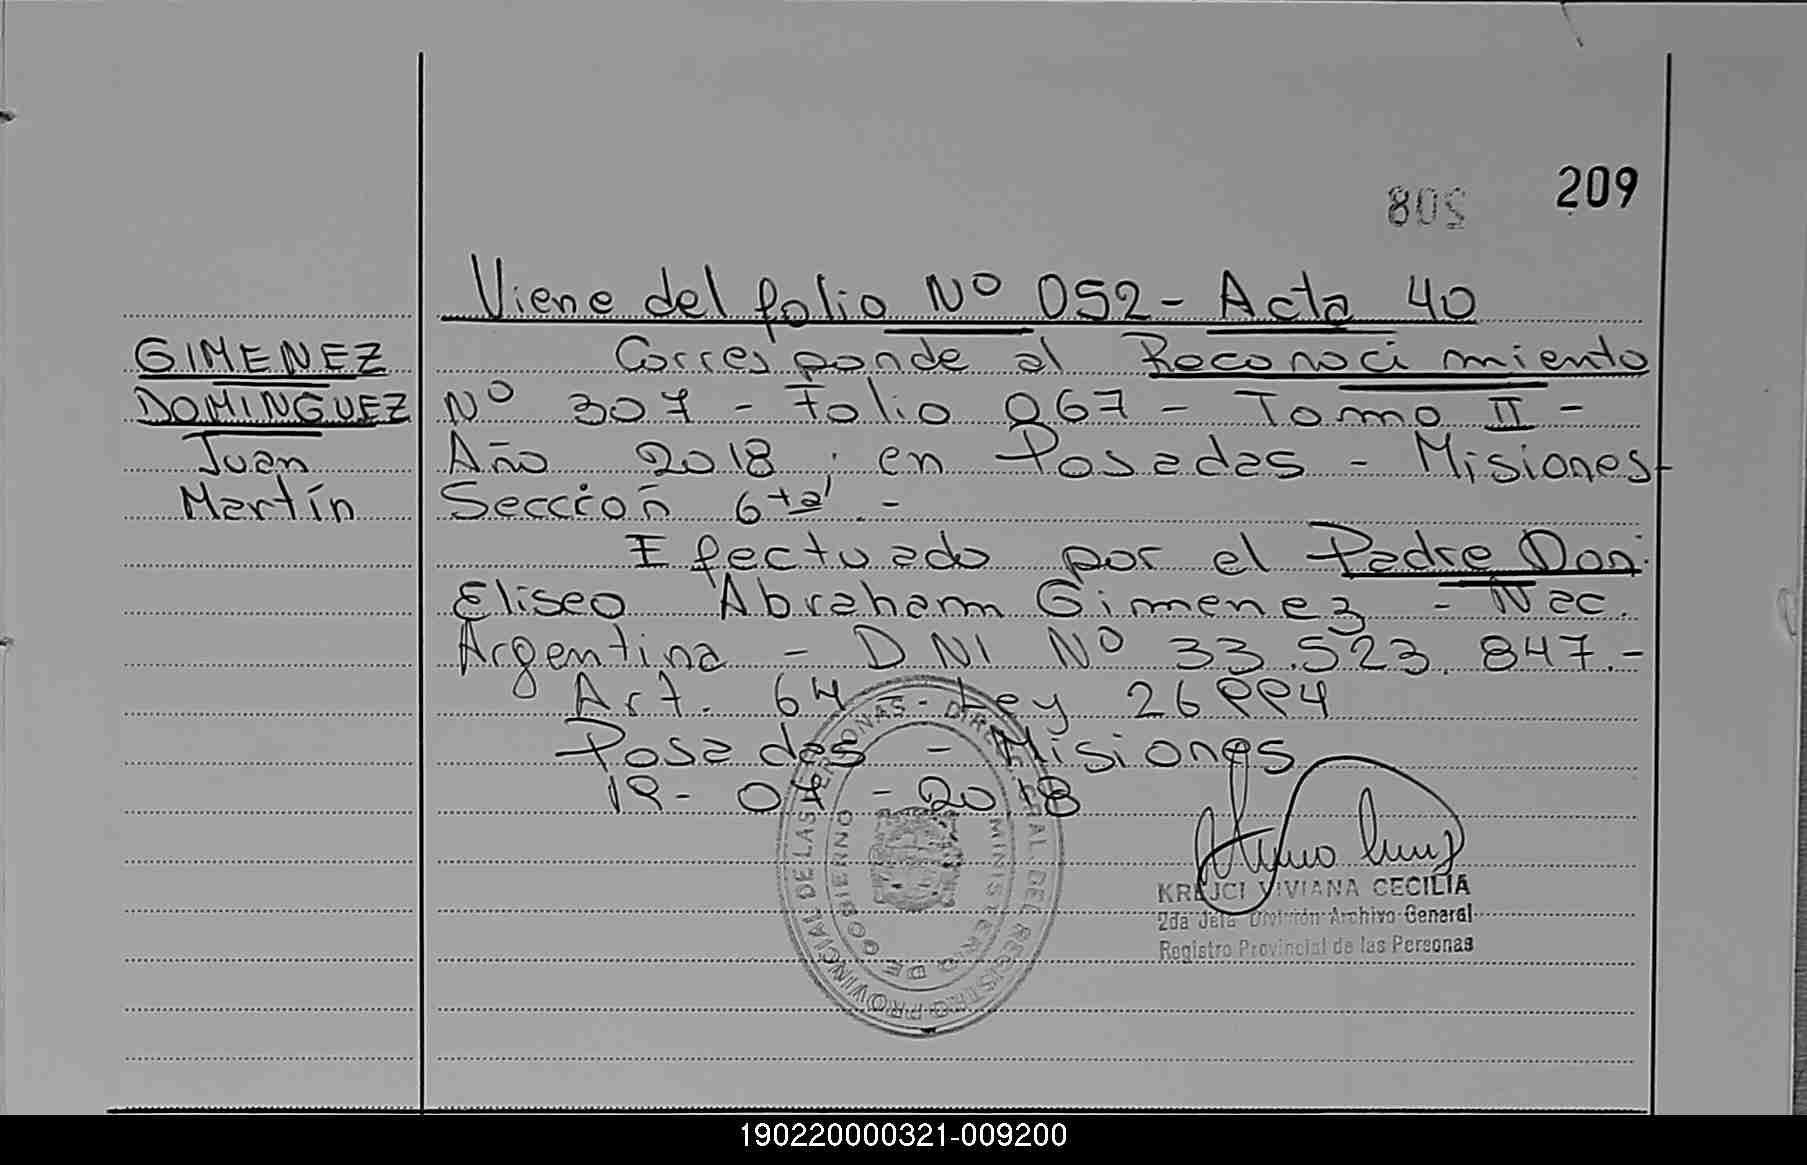 209
208
Viene del folio Nº 052 - Acta 40
GIMENEZ
DOMINGUEZ
Juan
Martín
Corresponde al Reconocimiento
Nº 307 - Folio 067 - Tomo II -
Año 2018 ; en Posadas - Misiones
Sección 6ta. -
Efectuado por el Padre Don:
Eliseo Abraham Gimenez - Nac.
Argentina - DNI Nº 33.523.847.-
Art. 64 - Ley 26994
Posadas - Misiones
19 - 07 - 2018
DIREC. GRAL. DEL REGISTRO PROVINCIAL DE LAS PERSONAS -
MINISTERIO DE GOBIERNO
KREJCI VIVIANA CECILIA
2da Jefa División Archivo General
Registro Provincial de las Personas
190220000321-009200